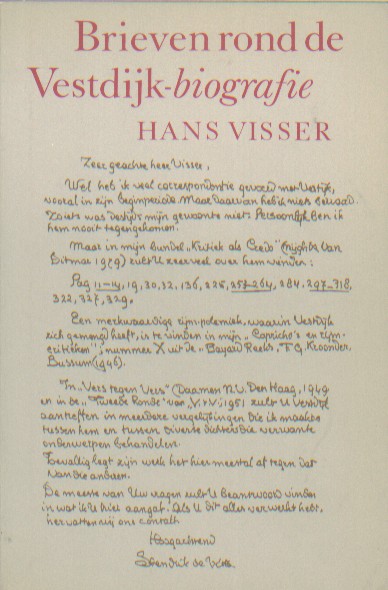 Brieven rond de
Vestdijk-biografie
HANS VISSER
Zeer geachte heer Visser,
Wel heb ik veel correspondentie gevoerd met Vestdijk,
vooral in zijn beginperiode. Maar daarvan heb ik niets bewaard.
Zoiets was destijds mijn gewoonte niet. Persoonlijk ben ik
hem nooit tegengekomen.
Maar in mijn bundel "Kritiek als Credo" (Nijgh & Van
Ditmar 1929) zult U zeer veel over hem vinden:
Pag 11-14, 19, 30, 32, 136, 226, 253-264, 284, 297-318,
322, 327, 329.
Een merkwaardige rijm-polemiek, waarin Vestdijk
zich gemengd heeft, is te vinden in mijn "Capricho's en rijm-
critieken", nummer X uit de "Bayard Reeks", F.G. Kroonder,
Bussum (1946).
In "Vers tegen Vers" Daamen N.V. Den Haag, 1949
en in de "Tweede Ronde" van "V. t. V." 1951 zult U Vestdijk
aantreffen in meerdere vergelijkingen die ik maakte
tussen hem en tussen diverse dichters die verwante
onderwerpen behandelen.
Toevallig legt zijn werk het hier meestal af tegen dat
van die anderen.
De meeste van Uw vragen zult U beantwoord vinden
in wat ik U hier aangaf. Als U dit alles verwerkt hebt,
hervatten wij ons contact.
Hoogachtend
Hendrik de Vries.